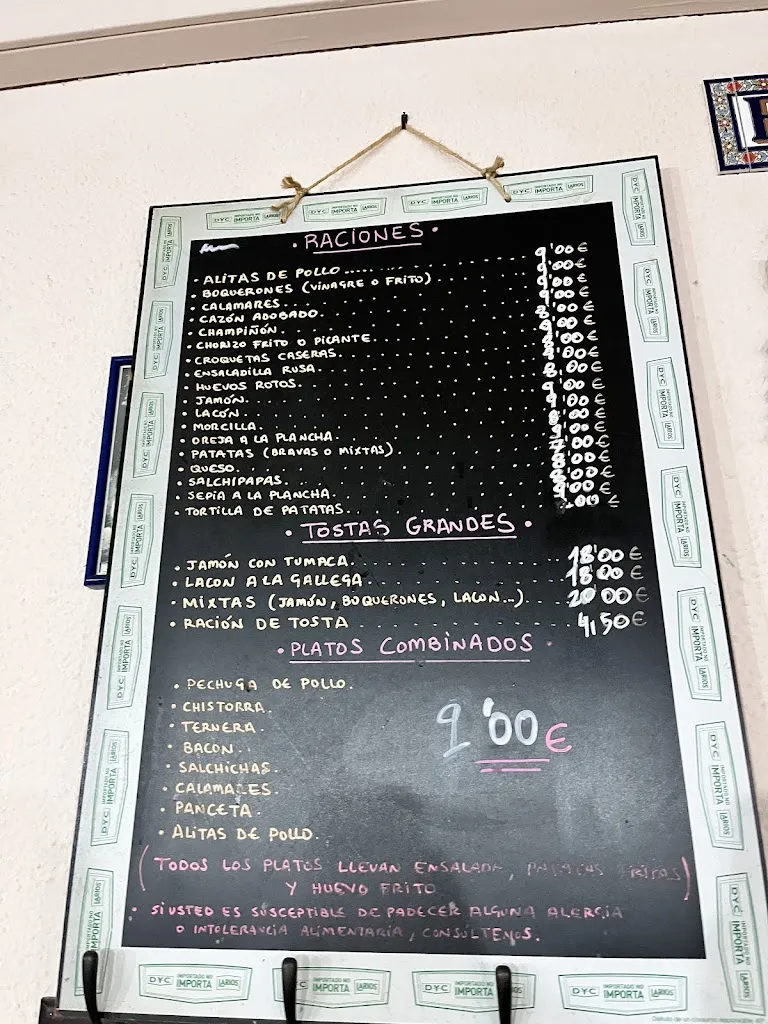 · RACIONES ·
· ALITAS DE POLLO ..... 9'00 €
· BOQUERONES (VINAGRE O FRITO) 9'00 €
· CALAMARES. 9'00 €
· CAZÓN ADOBADO. 9'00 €
· CHAMPIÑÓN.
· CHORIZO FRITO O PICANTE.
· CROQUETAS CASERAS.
· ENSALADILLA RUSA.
· HUEVOS ROTOS.
· JAMÓN.
· LACÓN.
· MORCILLA.
· OREJA A LA PLANCHA.
· PATATAS (BRAVAS O MIXTAS)
· QUESO.
· SALCHIPAPAS.
· SEPIA A LA PLANCHA.
· TORTILLA DE PATATAS.
· TOSTAS GRANDES ·
· JAMÓN CON TUMACA. 18'00 €
· LACON A LA GALLEGA 18'00 €
· MIXTAS (JAMÓN, BOQUERONES, LACON...). 20'00 €
· RACIÓN DE TOSTA 4,50 €
· PLATOS COMBINADOS ·
· PECHUGA DE POLLO.
· CHISTORRA.
· TERNERA.
· BACON.
· SALCHICHAS.
· CALAMARES.
· PANCETA.
· ALITAS DE POLLO.
9'00 €
(TODOS LOS PLATOS LLEVAN ENSALADA, PATATAS FRITAS)
Y HUEVO FRITO
· SI USTED ES SUSCEPTIBLE DE PADECER ALGUNA ALERGIA
O INTOLERANCIA ALIMENTARIA, CONSÚLTENOS.
DYC IMPORTADO NO IMPORTA LARIOS